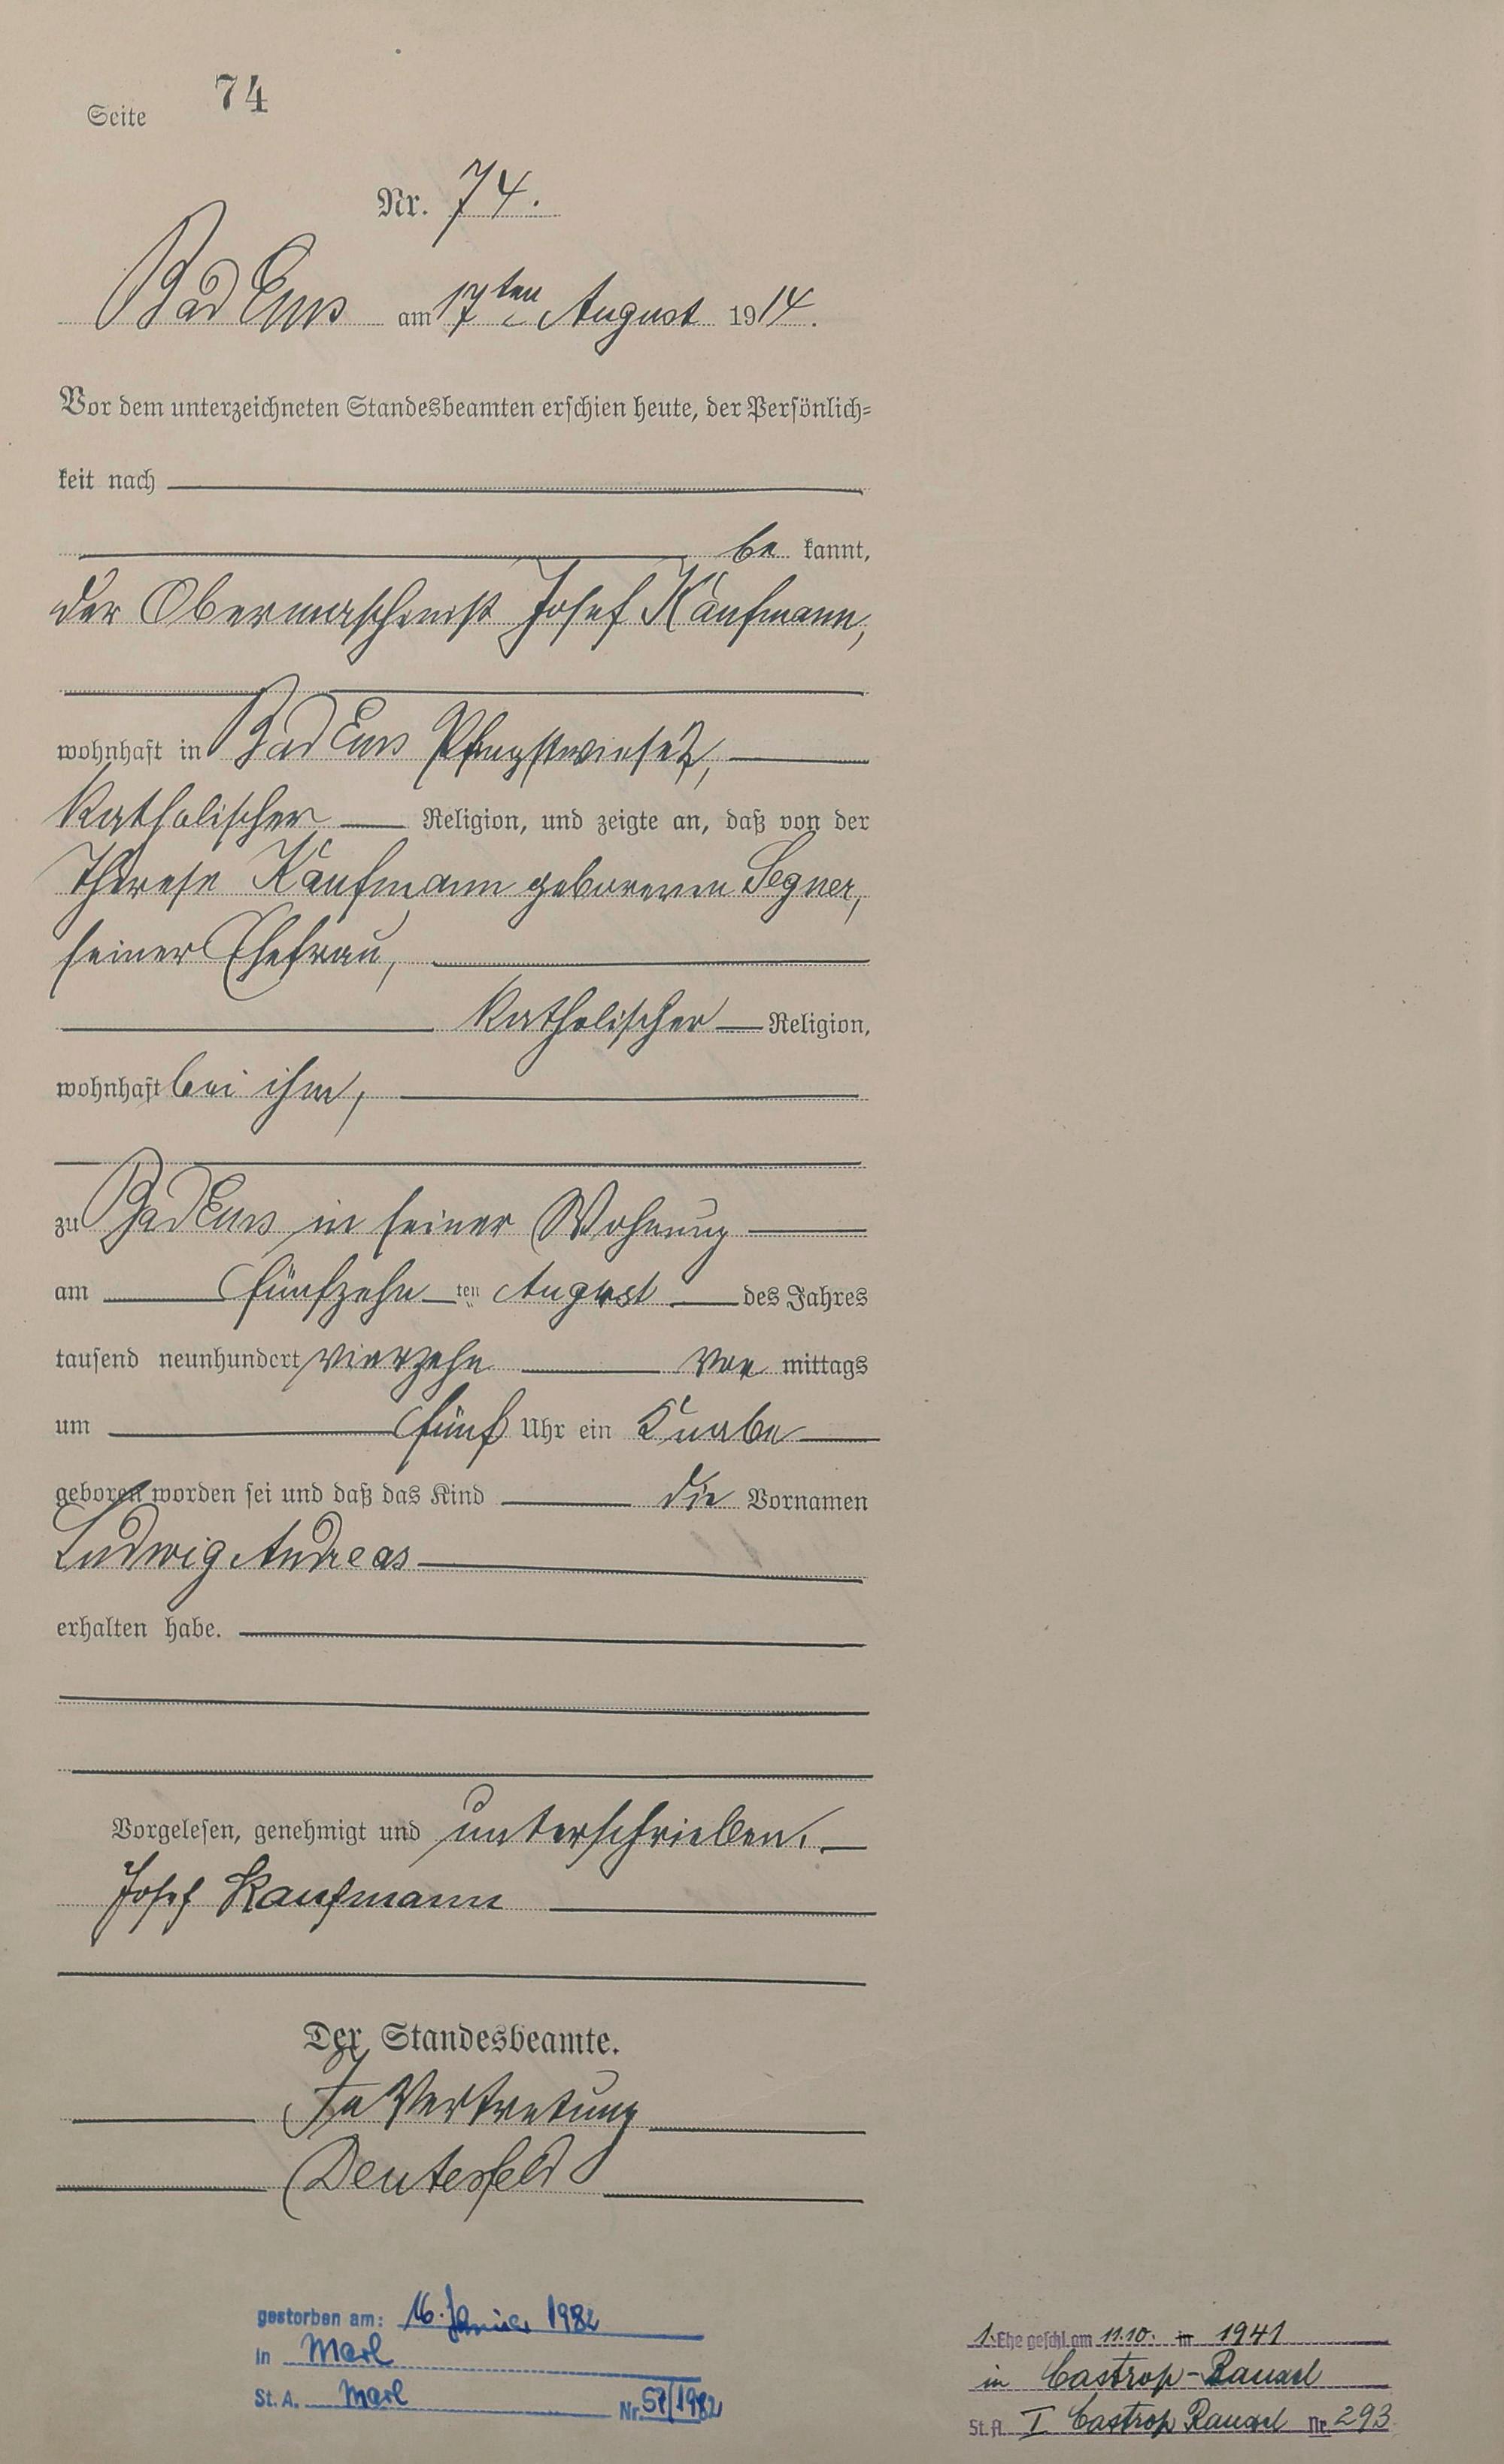 Seite 74
Nr. 74.
Bad Ems am 17ten August 1914.
Vor dem unterzeichneten Standesbeamten erschien heute, der Persönlich=
keit nach
be kannt,
der Obermaschinist Josef Kaufmann,
wohnhaft in Bad Ems Pfingstwiese 2,
katholischer Religion, und zeigte an, daß von der
Therese Kaufmann geborenen Segner,
seiner Ehefrau,
katholischer Religion,
wohnhaft bei ihm,
zu Bad Ems in seiner Wohnung
am fünfzehn ten August des Jahres
tausend neunhundert vierzehn vor mittags
um fünf Uhr ein Knabe
geboren worden sei und daß das Kind die Vornamen
Ludwig Andreas
erhalten habe.
Vorgelesen, genehmigt und unterschrieben.
Josef Kaufmann
Der Standesbeamte.
In Vertretung
Deutesfeld
gestorben am: 16. Januar 1982
in Marl
St. A. Marl Nr. 57/1982
1. Ehe geschl. am 11.10. in 1941
in Castrop-Rauxel
St.A. I Castrop Rauxel Nr. 293